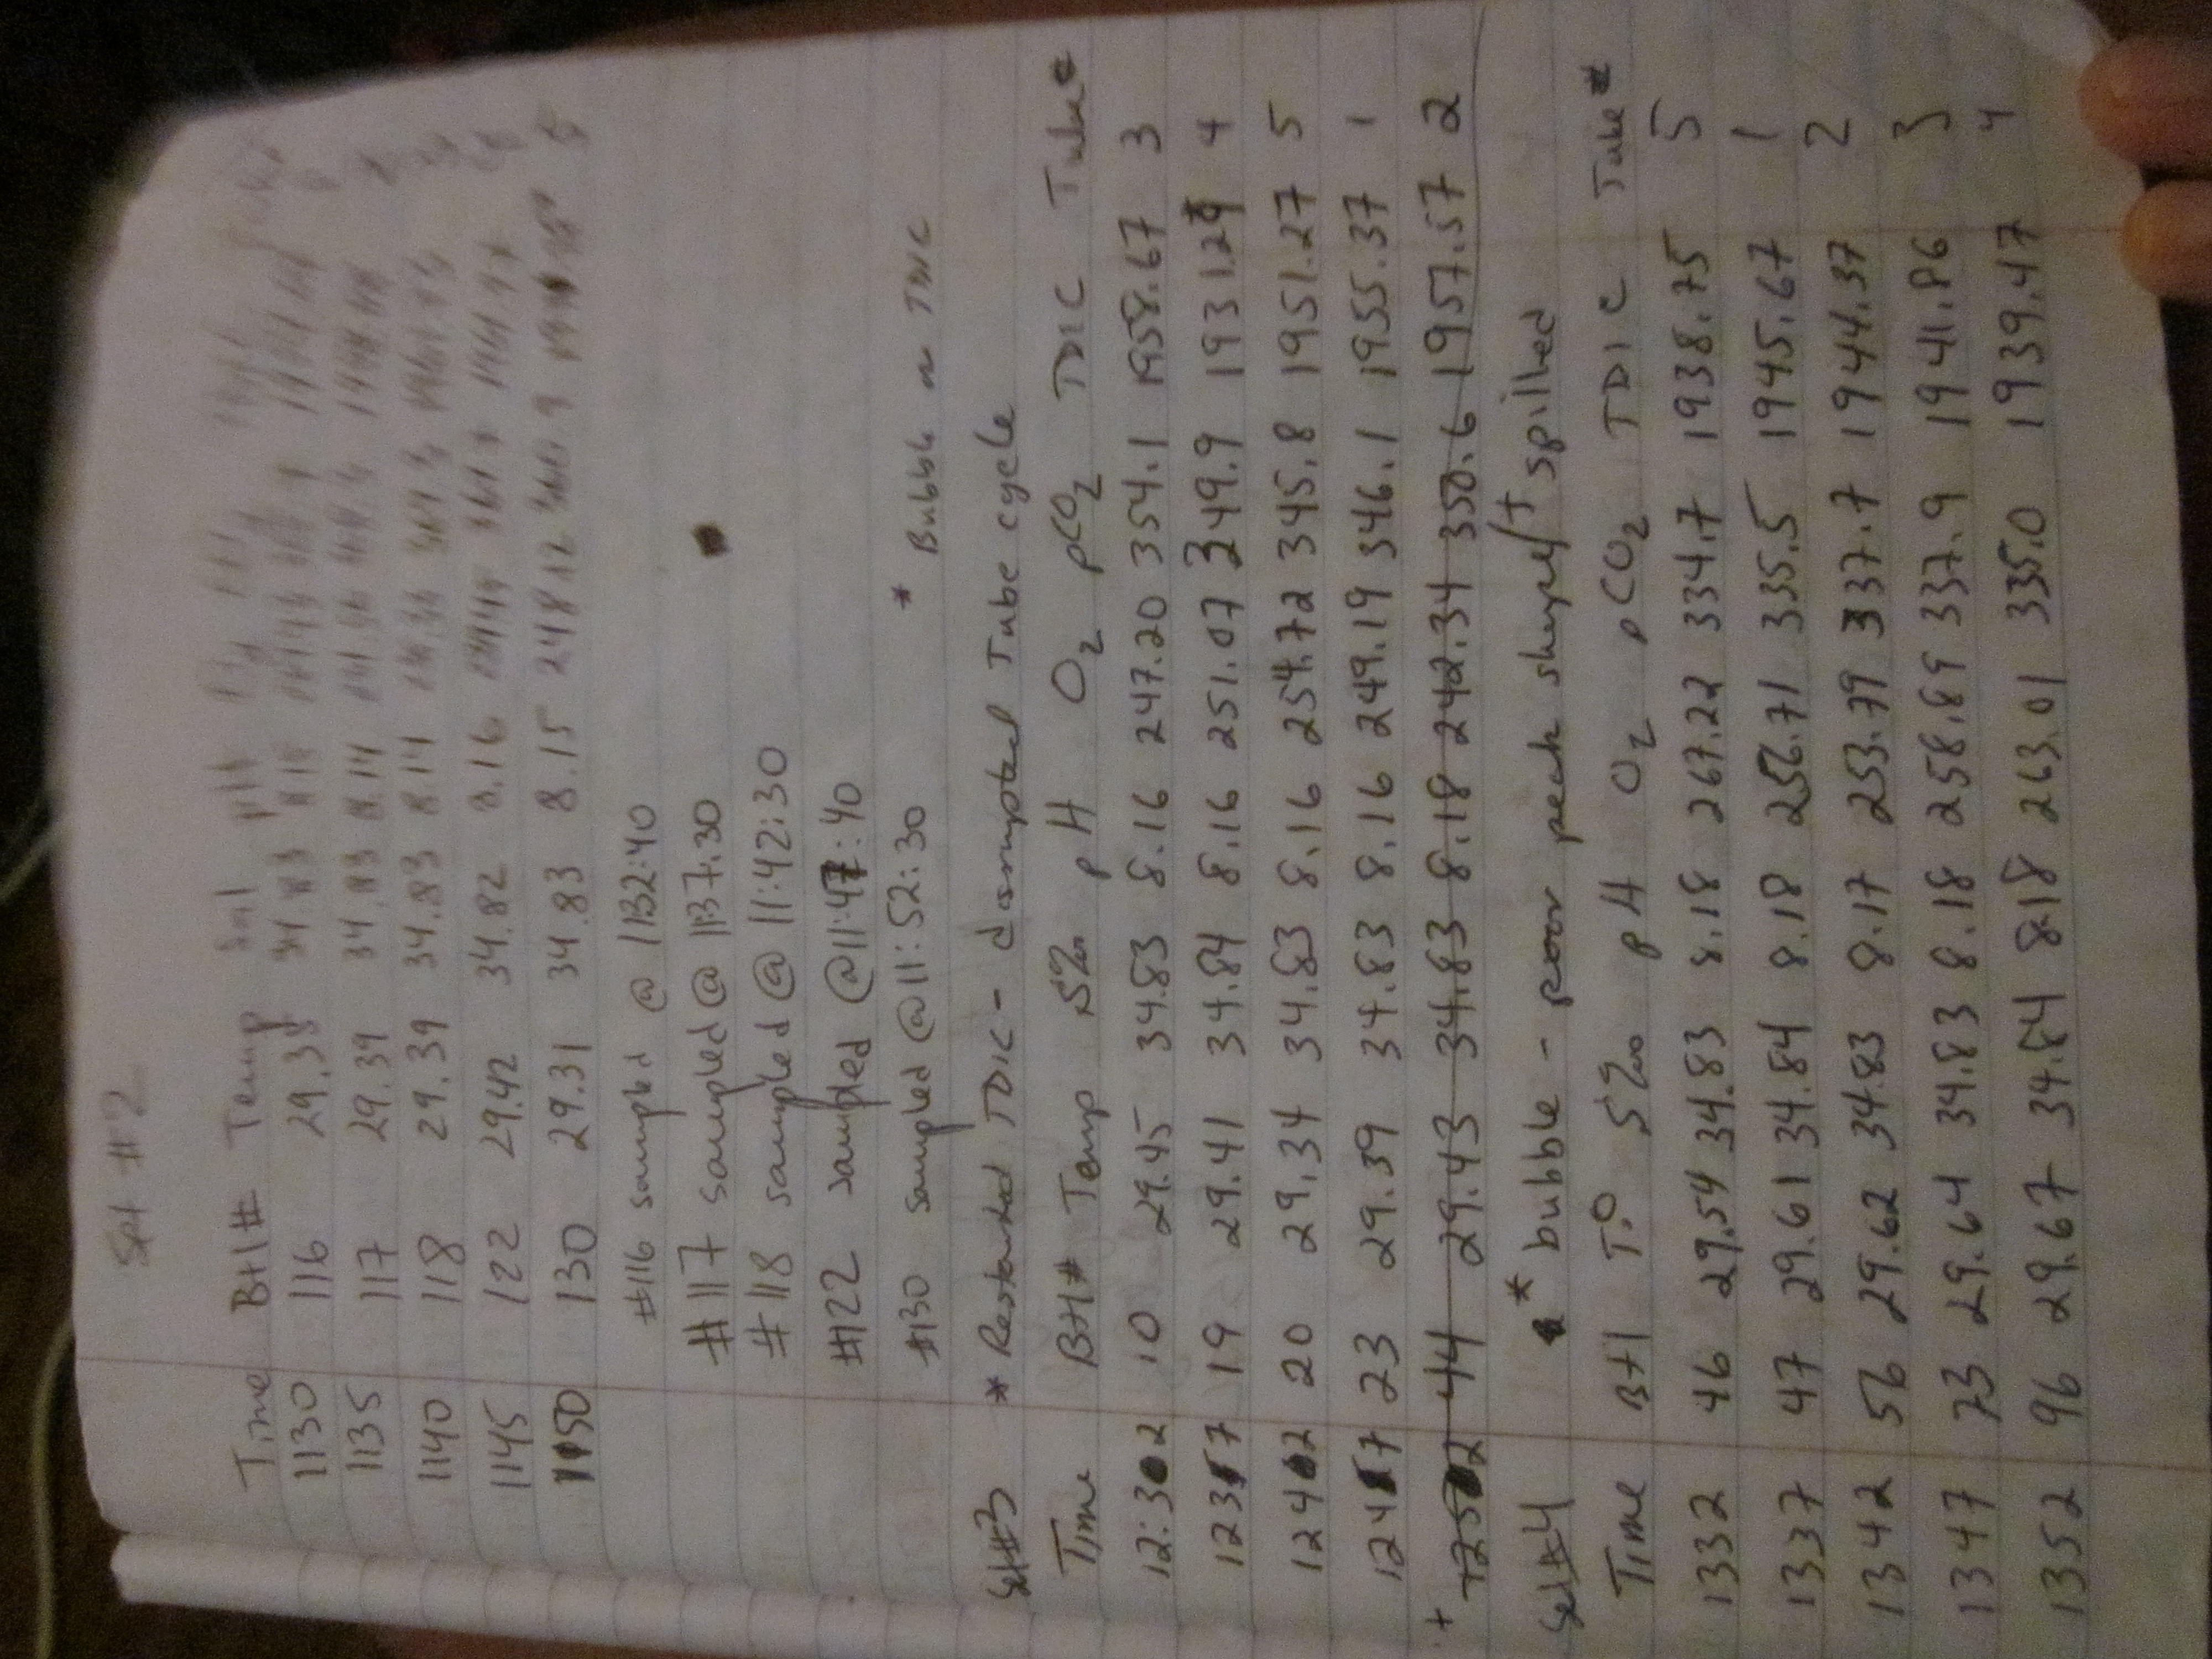 Set #2
Time Btl# Temp Sal pH
1130 116 29.38 34.83
1135 117 29.39 34.83 8.14
1140 118 29.39 34.83 8.14
1145 122 29.42 34.82 8.16
1150 130 29.31 34.83 8.15 248.12
#116 sampled @ 1132:40
#117 sampled @ 1137:30
#118 sampled @ 11:42:30
#122 sampled @ 11:47:40
#130 sampled @ 11:52:30 * Bubble in TDIC
Set#3 * Restarted TDIC - dampted Tube cycle
Time Btl# Temp S‰ pH O2 pCO2 TDIC Tube#
12:302 10 29.45 34.83 8.16 247.20 354.1 1958.67 3
1237 19 29.41 34.84 8.16 251.07 349.9 1931.29 4
1242 20 29.34 34.83 8.16 254.72 345.8 1951.27 5
1247 23 29.39 34.83 8.16 249.19 346.1 1955.37 1
+ 1252 44 29.43 34.83 8.18 242.34 350.6 1957.57 2
Set#4 * bubble - poor peak shape/+ spilled
Time Btl T° S‰ pH O2 pCO2 TDIC Tube#
1332 46 29.54 34.83 8.18 267.22 334.7 1938.75 5
1337 47 29.61 34.84 8.18 256.71 335.5 1945.67 1
1342 56 29.62 34.83 8.17 253.79 337.7 1944.37 2
1347 73 29.64 34.83 8.18 258.89 337.9 1941.86 3
1352 96 29.67 34.84 8.18 263.01 335.0 1939.47 4